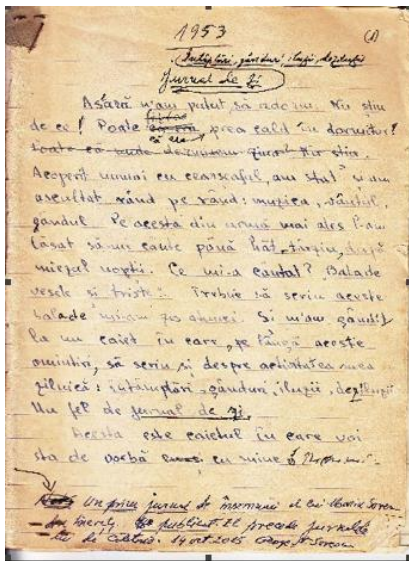 1953
(1)
(Întâmplări, gânduri, iluzii, deziluzii
Jurnal de zi
Asară n'am putut să adorm. Nu știu
de ce! Poate prea cald în dormitor!
că era
Nu știu.
Acoperit numai cu cearșaful, am stat și am
ascultat rând pe rând: muzica, vântul,
gândul. Pe acesta din urmă mai ales l-am
lăsat să-mi cânte până hăt, târziu, după
miezul nopții. Ce mi-a cântat? Balade
vesele și triste. Trebuie să scriu aceste
balade mi-am zis atunci. Si m'am gândit
la un caiet în care, pe lângă aceste
amintiri, să scriu și despre activitatea mea
zilnică: întâmplări, gânduri, iluzii, deziluzii
Un fel de jurnal de zi.
Acesta este caietul în care voi
sta de vorbă cu mine
Un prim jurnal de însemnări al lui Marin Sorescu
din liceu, publicat. El precede jurnalele
lui de 14 oct 2015 George Sorescu